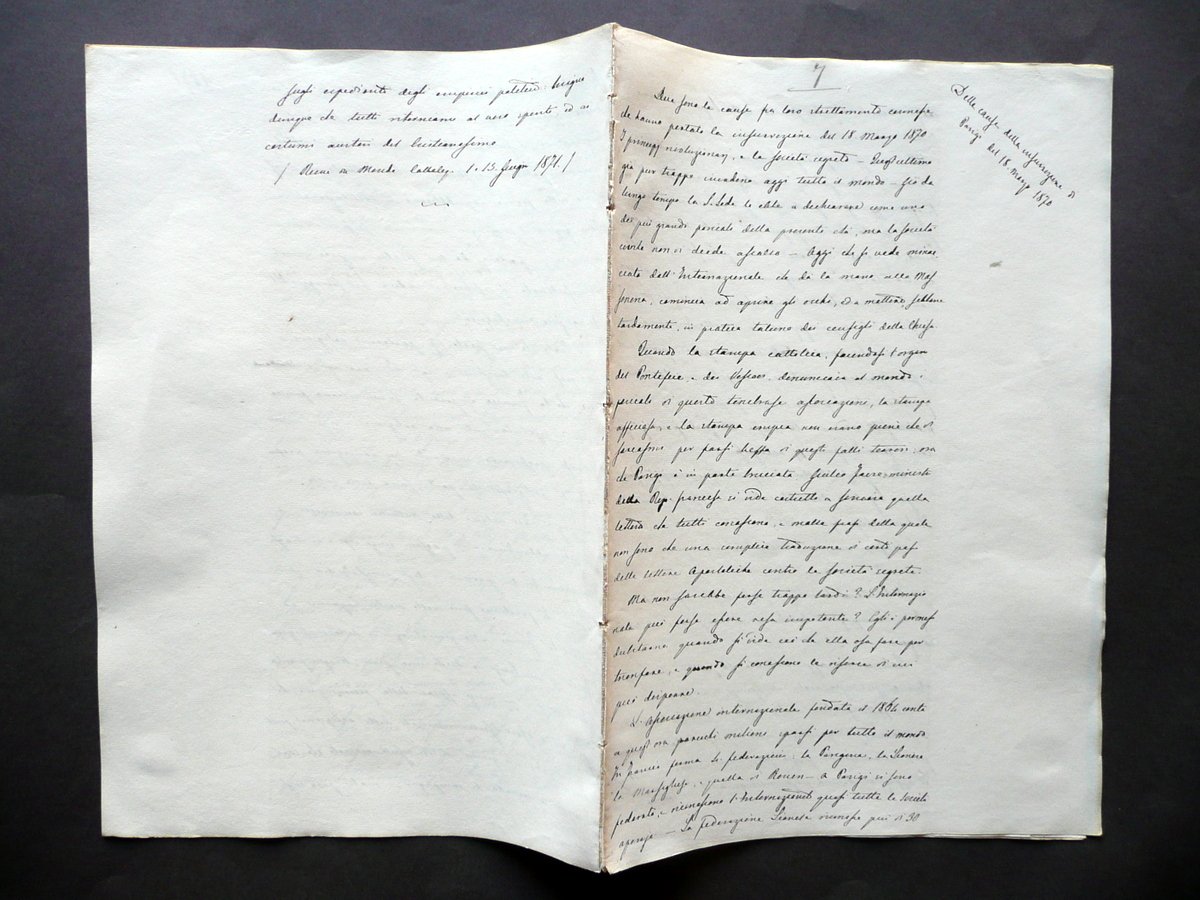 sugli espedienti degli empirici politici. Bisogna
dunque che tutti ritorniamo al vero spirito ed ai
costumi austeri del Cristianesimo
/ Revue du Monde Catholiq. 1. 13. Giugno 1871. /
7
Della causa della insurrezione di
Parigi del 18 Marzo 1870
Due sono le cause fra loro strettamente connesse
che hanno portato la insurrezione del 18 Marzo 1870
I principj rivoluzionarj, e la società segreta — Quest'ultima
già pur troppo invadeva oggi tutto il mondo — Già da
lungo tempo la S. Sede la ebbe a dichiarare come uno
dei più grandi pericoli della presente età, ma la società
civile non vi diede ascolto — Oggi che si vede minac
ciata dall'Internazionale che dà la mano alla Mas
soneria, comincia ad aprire gli occhi, ed a mettere, sebbene
tardamente, in pratica taluno dei consigli della Chiesa.
Quando la stampa cattolica, facendosi l'organo
del Pontefice, e dei Vescovi, denunciava al mondo i
pericoli di questa tenebrosa associazione, la stampa
officiosa, e la stampa empia non erano piene che di
sarcasmi per farsi beffa di questi fatti terrori; ora
che Parigi è in parte bruciata Giulio Favre, ministro
della Rep. francese si vide costretto a scrivere quella
lettera che tutti conoscono, e molte frasi della quale
non sono che una semplice traduzione di certe frasi
delle lettere Apostoliche contro la società segreta.
Ma non sarebbe forse troppo tardi? L'Internazio
nale può forse essere resa impotente? Egli è permesso
dubitarne quando si vide ciò che ella osa fare per
trionfare, e quando si conoscono le risorse di cui
può disporre.
L'Associazione internazionale fondata il 1864 conta
a quest'ora parecchi milioni sparsi per tutto il mondo
In Francia forma 4 federazioni: la Parigina, la Lionese
la Marsigliese, e quella di Rouen — A Parigi si sono
federate, e riuniscono l'Internazionale quasi tutte le Società
operaje — La federazione Lionese riunisce più di 30